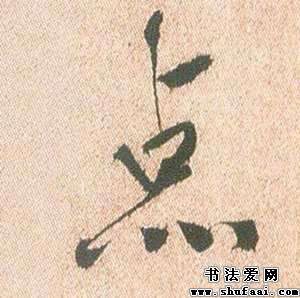 点
书法爱网
www.shufaai.com